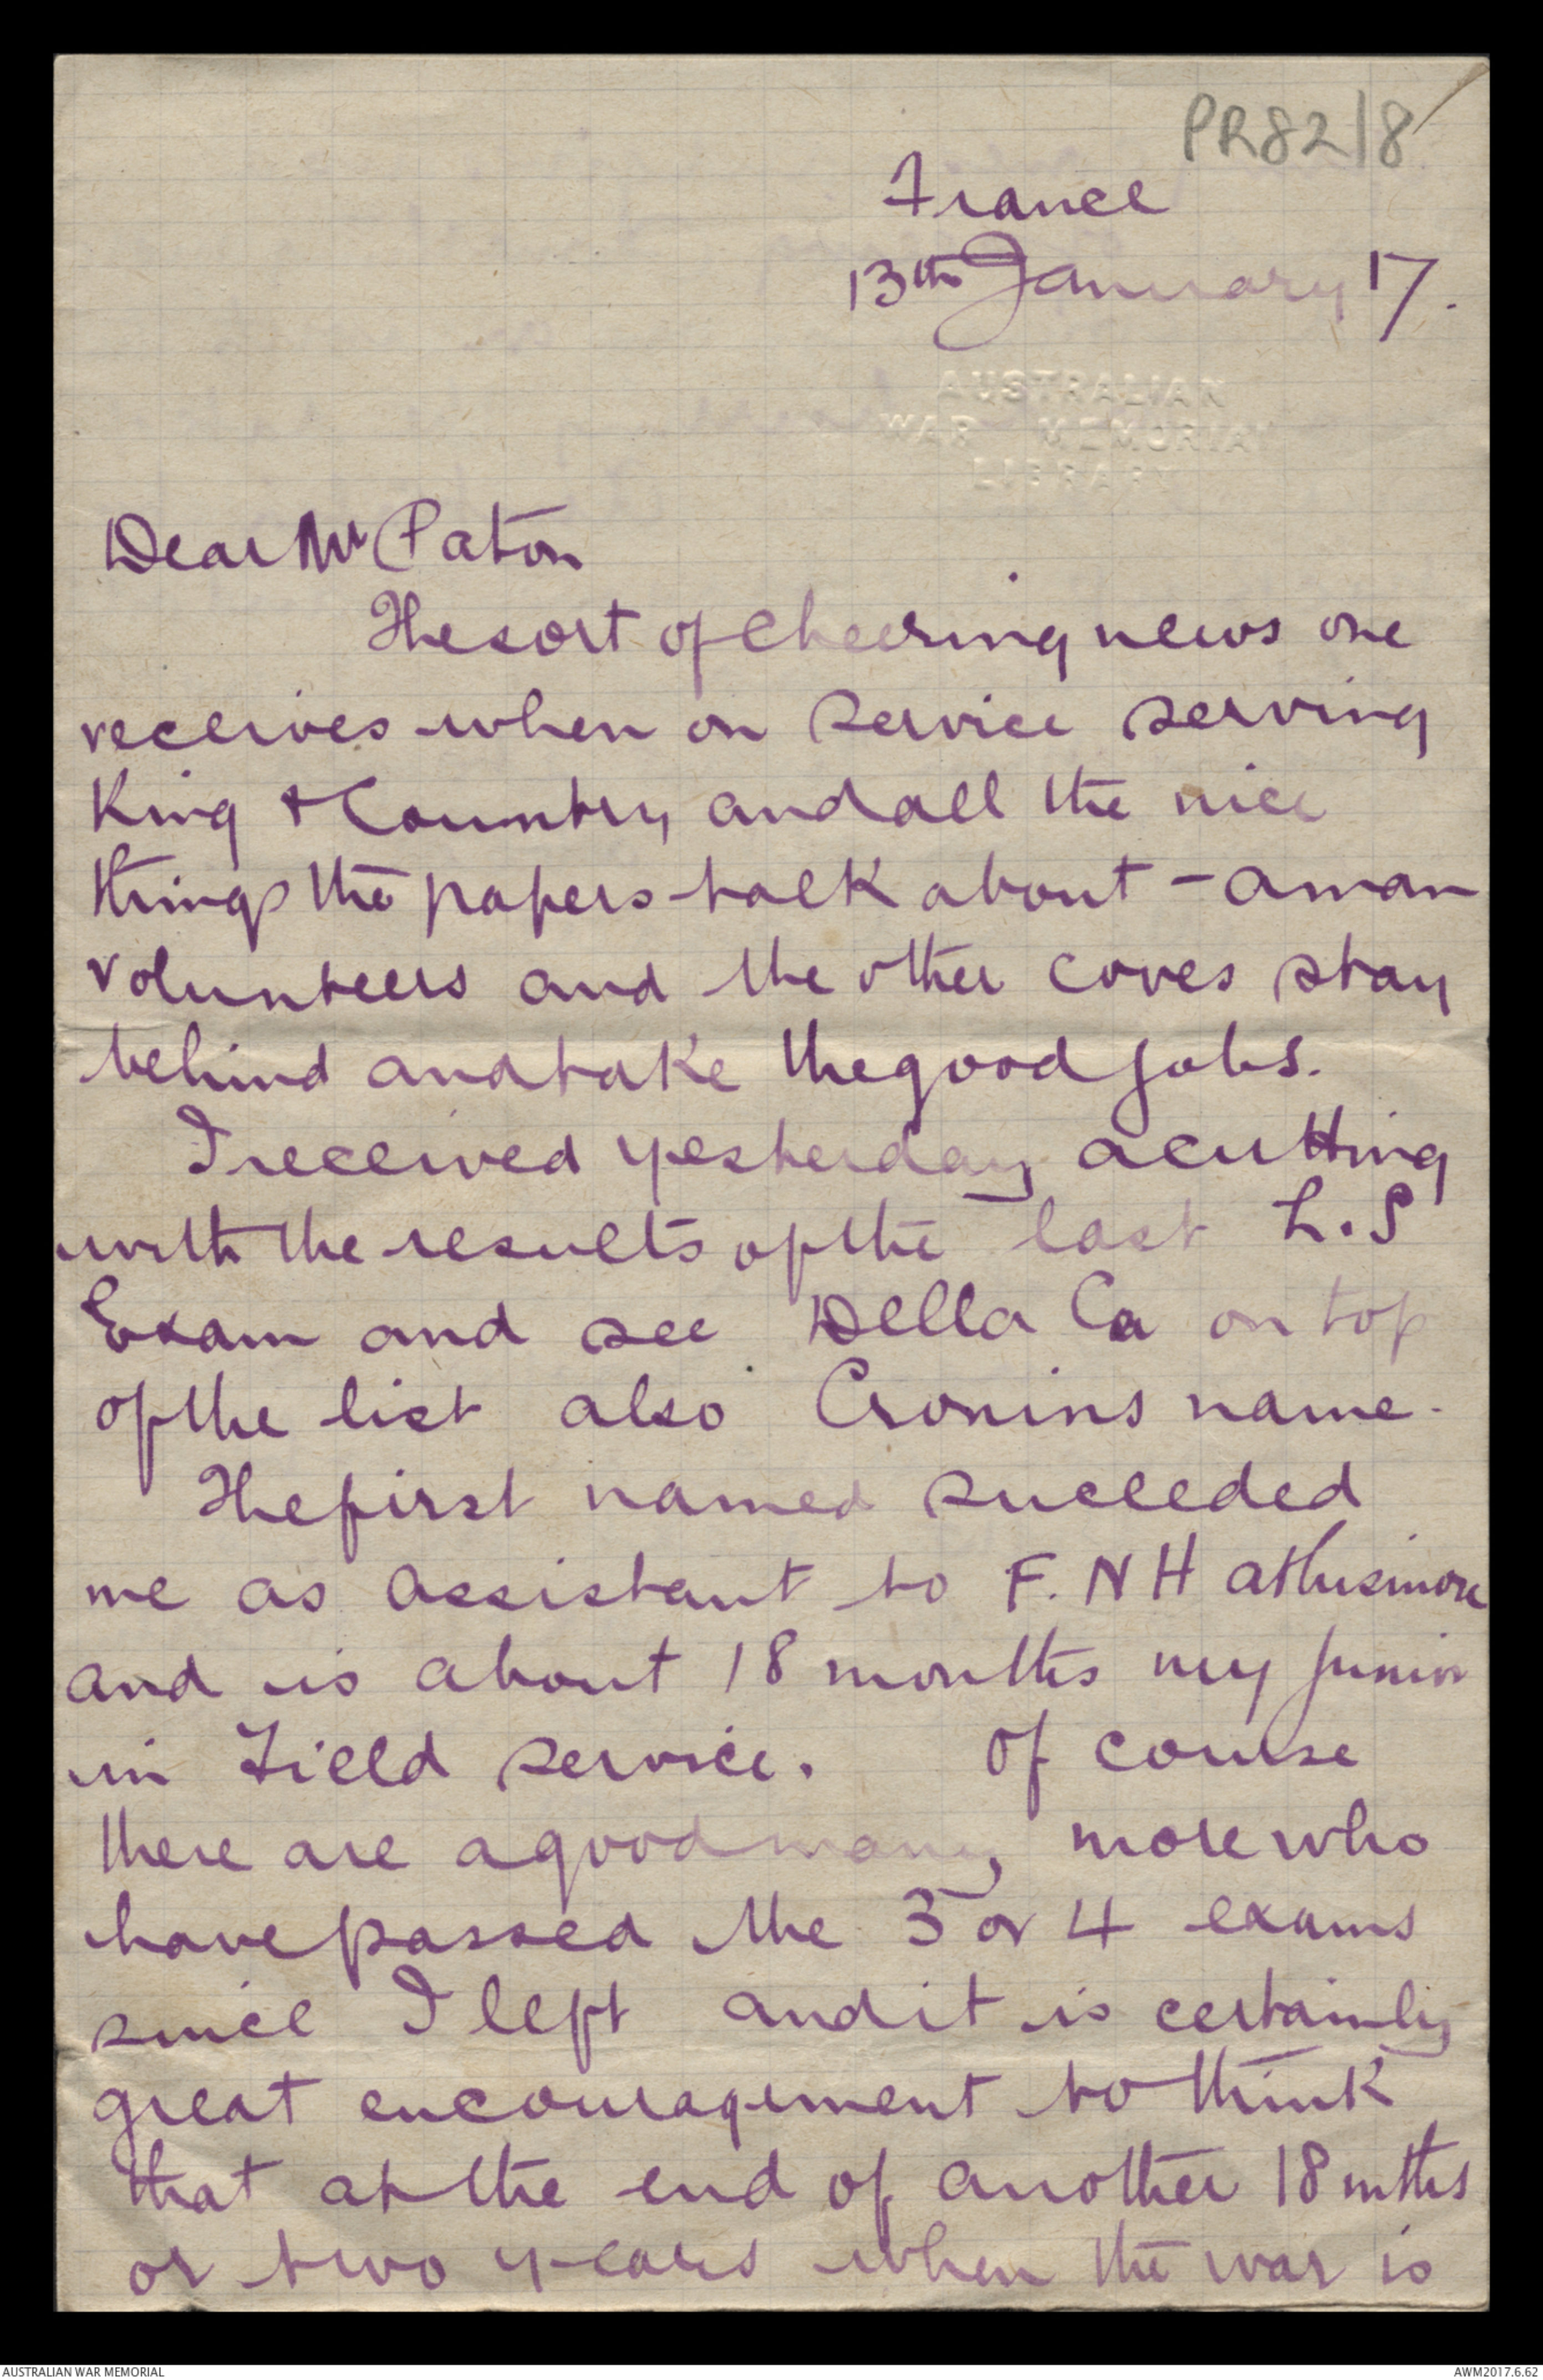 PR82/8
France
13th January 17.
AUSTRALIAN
WAR MEMORIAL
LIBRARY
Dear Mr Paton
The sort of cheering news one
receives when on service serving
King & Country and all the nice
things the papers talk about - a man
volunteers and the other coves stay
behind and take the good jobs.
I received yesterday a cutting
with the results of the last L.S
Exam and see Della Ca on top
of the list also Cronins name.
The first named succeded
me as assistant to F. N H at
and is about 18 months my junior
in Field service. Of course
there are a good many more who
have passed the 3 or 4 exams
since I left and it is certainly
great encouragement to think
that at the end of another 18 mths
or two years when the war is
AUSTRALIAN WAR MEMORIAL
AWM2017.6.62